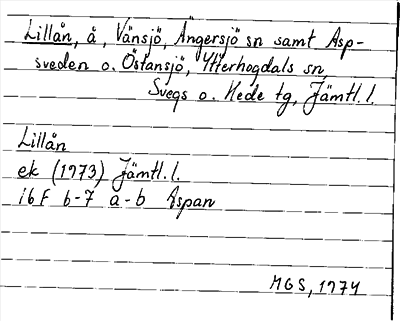 Lillån, å, Vänsjö, Ängersjö sn samt Asp-
sveden o. Östansjö, Ytterhogdals sn,
Svegs o. Hede tg, Jämtl. l.
Lillån
ek (1973) Jämtl. l.
16F 6-7 a-b Aspan
MGS, 1974